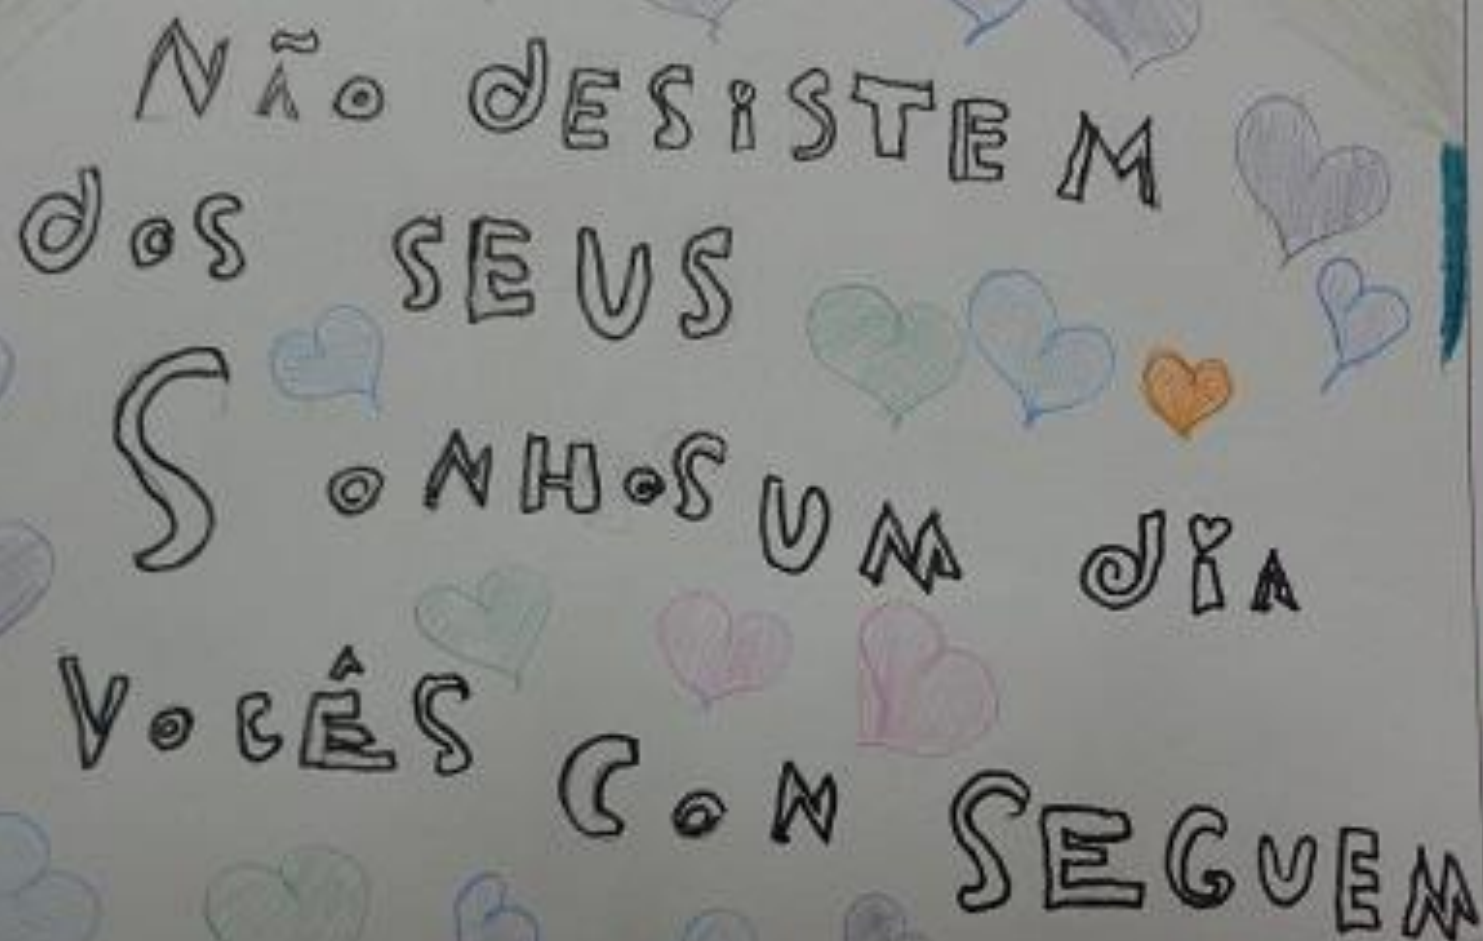 NÃO dESiSTEM
dOS SEUS
SONHOS UM diA
VOCÊS CONSEGUEM